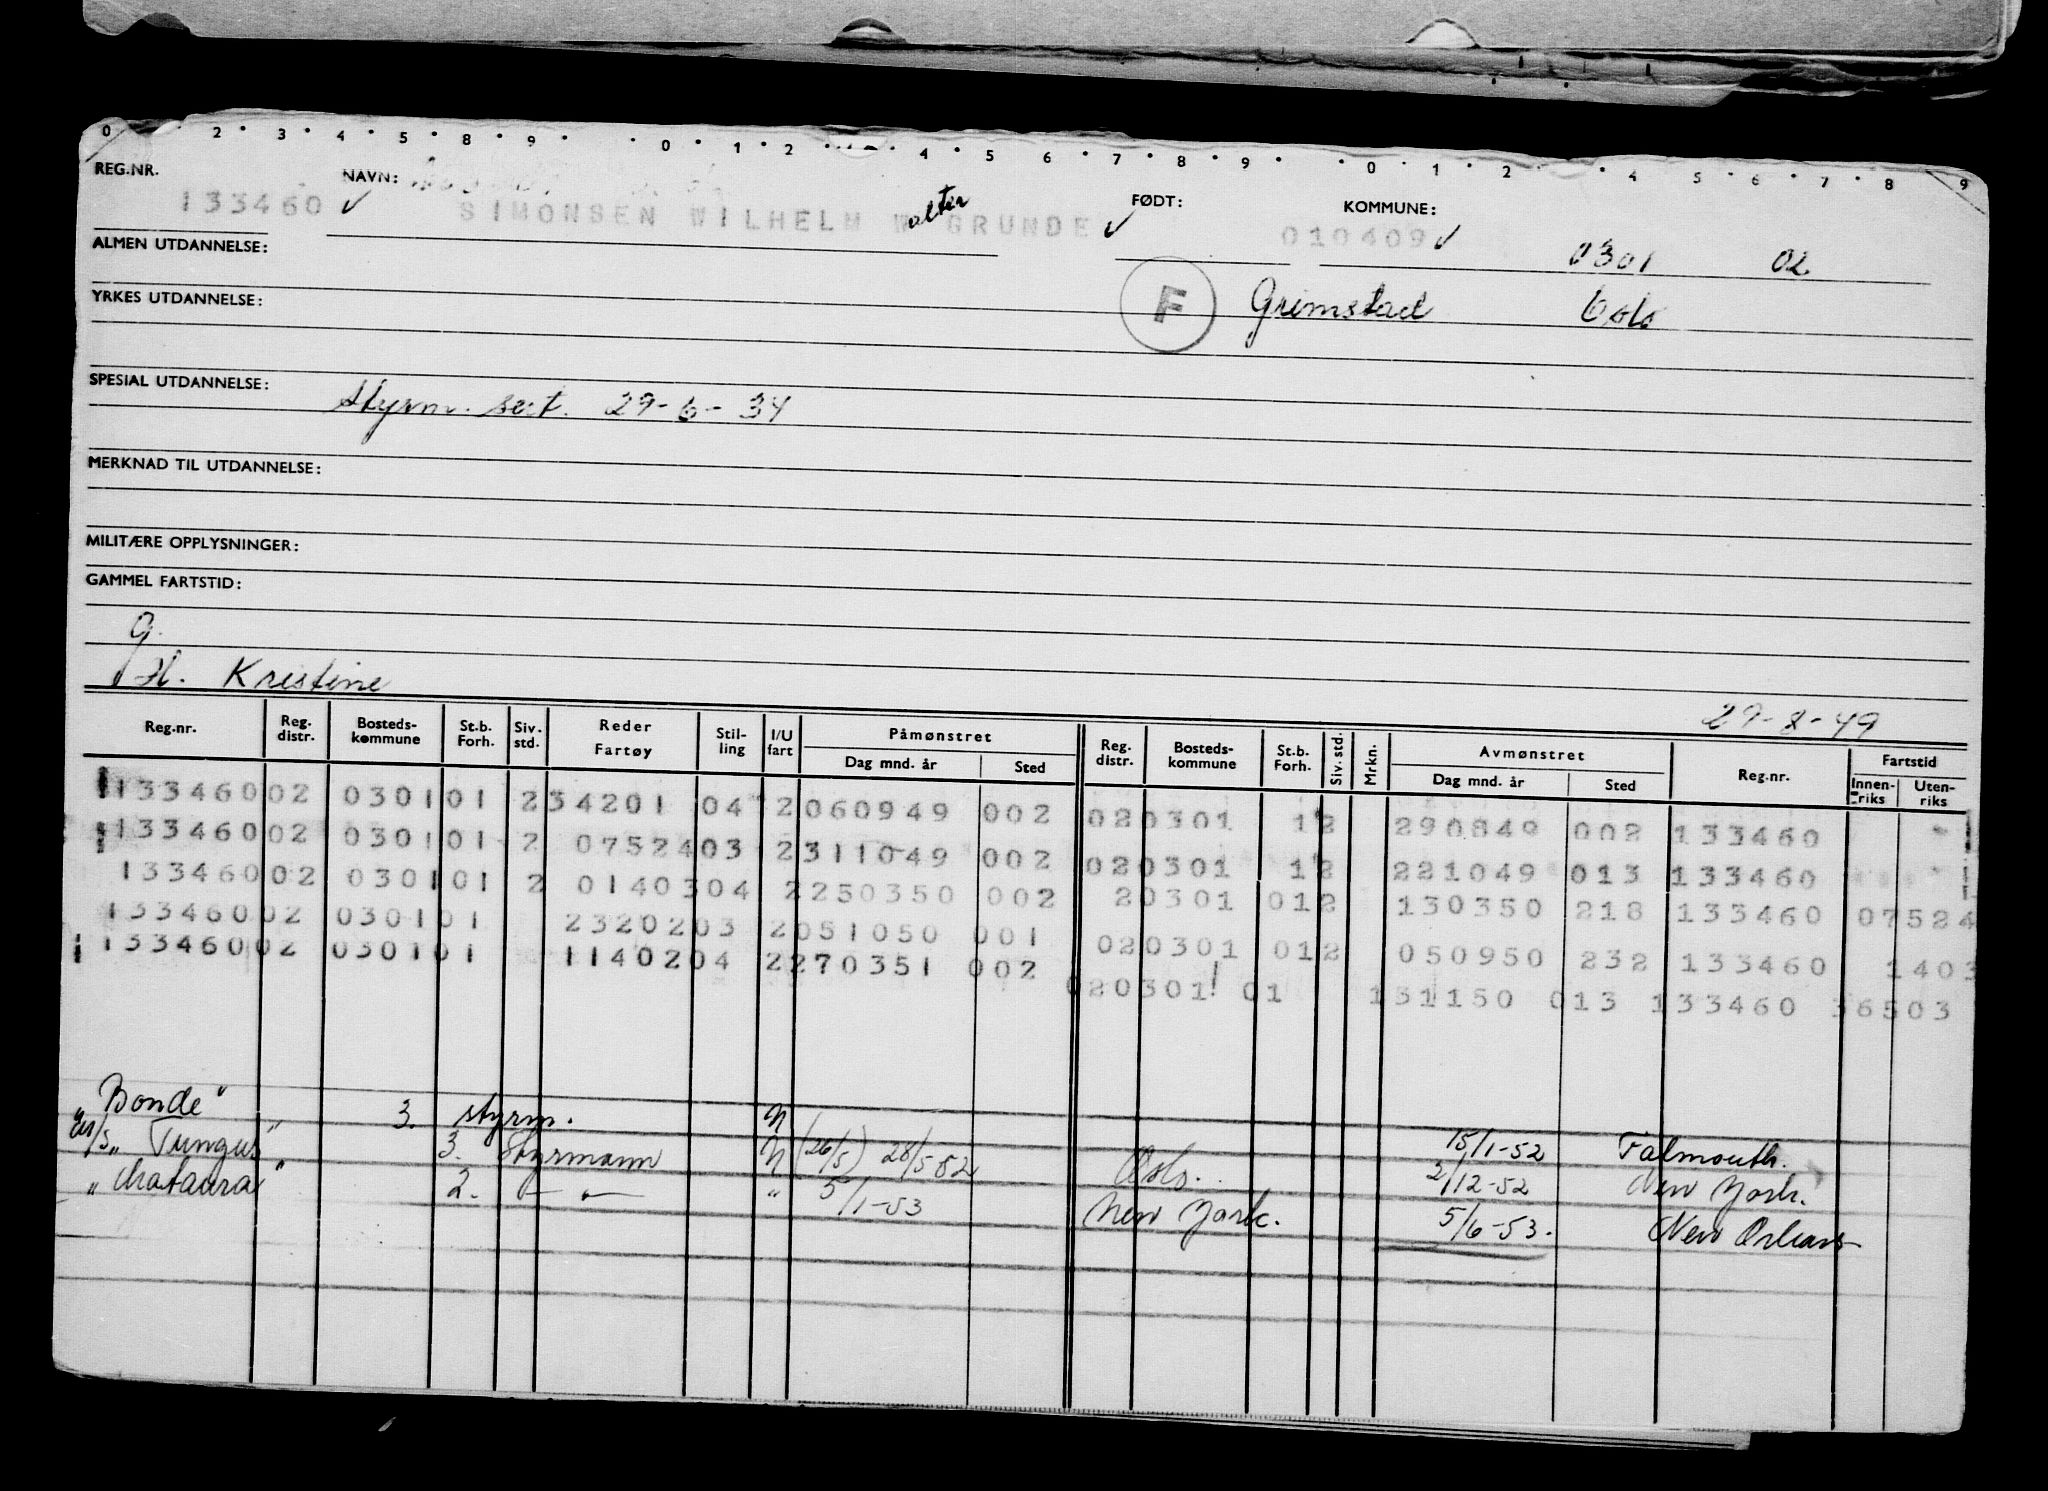 0 2 3 4 5 8 9 0 1 2 4 5 6 7 8 9 0 1 2 4 5 6 7 8 9
REG.NR. NAVN: FØDT: KOMMUNE:
133460 ✓ SIMONSEN WILHELM W alter GRUNDE ✓ 010409 ✓ 0301 02
ALMEN UTDANNELSE:
F Grimstad Oslo
YRKES UTDANNELSE:
SPESIAL UTDANNELSE: styrm. sert. 29-6-34
MERKNAD TIL UTDANNELSE:
MILITÆRE OPPLYSNINGER:
GAMMEL FARTSTID:
G.
H. Kristine
29-8-49
Reg.nr. Reg. distr. Bosteds-kommune St.b. Forh. Siv. std. Reder Fartøy Stil-ling I/U fart Påmønstret Dag mnd. år Sted Reg. distr. Bosteds-kommune St.b. Forh. Siv. std. Mrkn. Avmønstret Dag mnd. år Sted Reg.nr. Fartstid Innen-riks Uten-riks
133460 02 0301 01 2 34201 04 2 060949 002 02 0301 1 2 290849 002 133460
133460 02 0301 01 2 07524 03 2 311049 002 02 0301 1 2 221049 013 133460
133460 02 0301 01 2 01403 04 2 250350 002 2 0301 01 2 130350 218 133460 07524
133460 02 0301 01 23202 03 2 051050 001 02 0301 01 2 050950 232 133460 1403
133460 02 0301 01 11402 04 2 270351 002 02 0301 01 131150 013 133460 36503
"Bonde" 3. styrm. N 15/1-52 Falmouth.
M/S "Tungus" 3. Styrmann N (26/5) 28/5-52 Oslo. 2/12-52 New York.
"Mataura" 2. — " — " 5/1-53 New York. 5/6-53. New Orleans